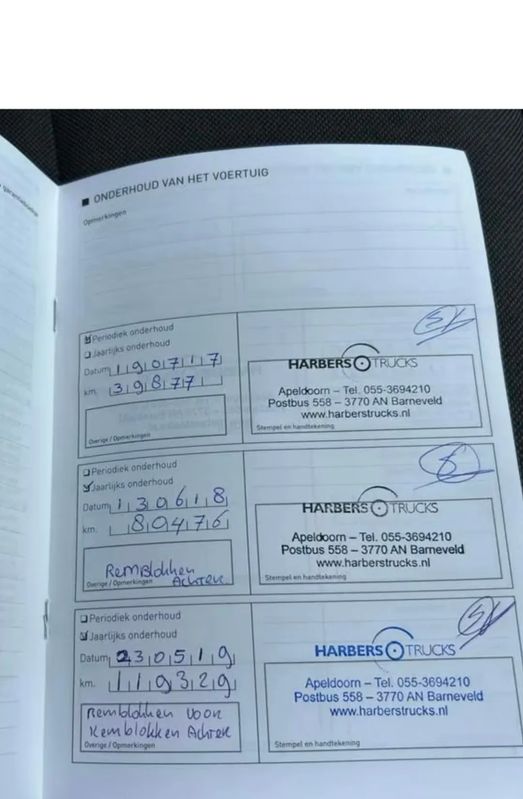 ONDERHOUD VAN HET VOERTUIG
Opmerkingen
Periodiek onderhoud
Jaarlijks onderhoud
Datum 190717
km. 39877
Overige / Opmerkingen
HARBERS TRUCKS
Apeldoorn – Tel. 055-3694210
Postbus 558 – 3770 AN Barneveld
www.harberstrucks.nl
Stempel en handtekening
Periodiek onderhoud
Jaarlijks onderhoud
Datum 130618
km. 80476
Remblokken
Achter
Overige / Opmerkingen
HARBERS TRUCKS
Apeldoorn – Tel. 055-3694210
Postbus 558 – 3770 AN Barneveld
www.harberstrucks.nl
Stempel en handtekening
Periodiek onderhoud
Jaarlijks onderhoud
Datum 230519
km. 119329
Remblokken voor
Remblokken Achter
Overige / Opmerkingen
HARBERS TRUCKS
Apeldoorn – Tel. 055-3694210
Postbus 558 – 3770 AN Barneveld
www.harberstrucks.nl
Stempel en handtekening